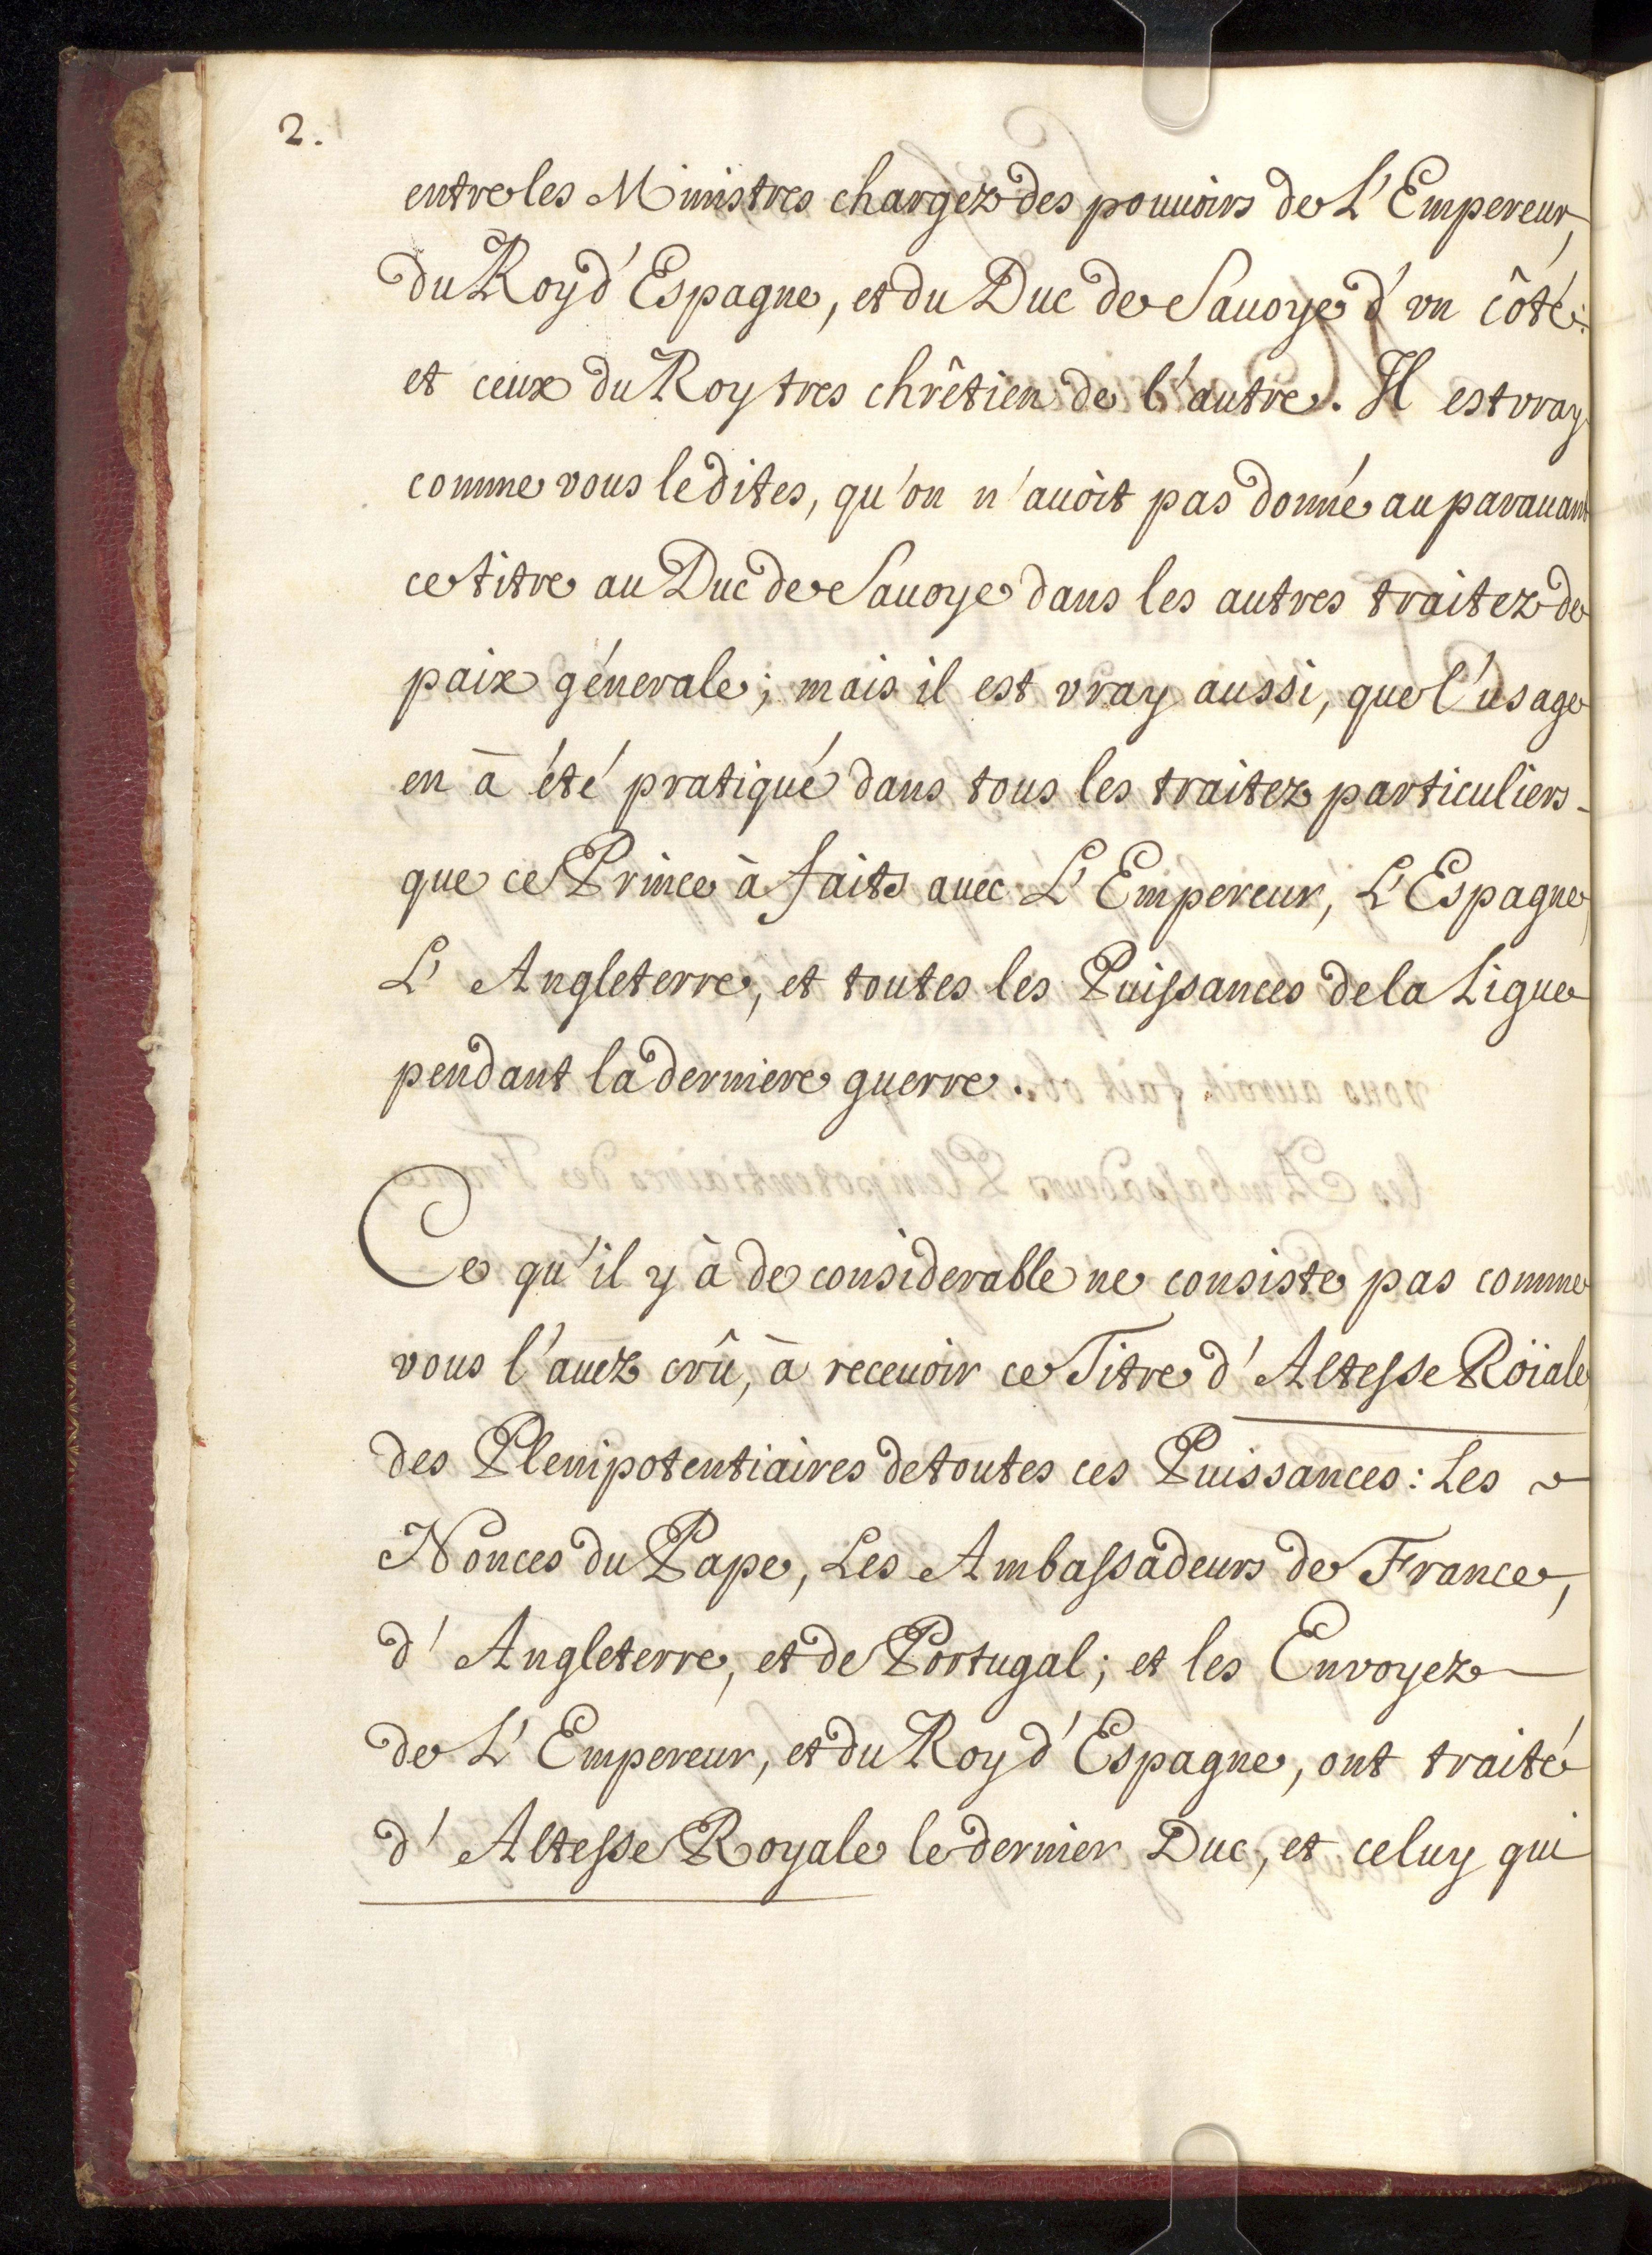 2.
entre les Ministres chargez des pouuoirs de L'Empereur,
du Roy d'Espagne, et du Duc de Sauoye d'vn côté:
et ceux du Roy tres chrêtien de l'autre. Il est vray
comme vous le dites, qu'on n'auoit pas donné auparauant
ce titre au Duc de Sauoye dans les autres traitez de
paix génerale; mais il est vray aussi, que l'usage
en à été pratiqué dans tous les traitez particuliers
que ce Prince à faits auec L'Empereur, L'Espagne,
L'Angleterre, et toutes les Puissances de la Ligue
pendant la derniere guerre.
Ce qu'il y à de considerable ne consiste pas comme
vous l'auez crû, à receuoir ce Titre d'Altesse Roïale
des Plenipotentiaires de toutes ces Puissances: Les
Nonces du Pape, Les Ambassadeurs de France,
d'Angleterre, et de Portugal; et les Envoyez
de L'Empereur, et du Roy d'Espagne, ont traité
d'Altesse Royale le dernier Duc, et celuy qui